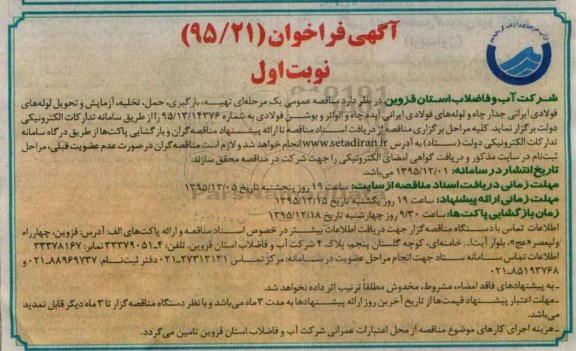 آگهی فراخوان (۹۵/۲۱)
نوبت اول
شرکت آب و فاضلاب استان قزوین در نظر دارد مناقصه عمومی یک مرحله‌ای تهیه، بارگیری، حمل، تخلیه، آزمایش و تحویل لوله‌های
فولادی ایرانی جدار چاه و لوله‌های فولادی ایرانی آبده چاه و الواتر و بوشن فولادی به شماره ۹۵/۱۳/۱۴۳۷۶ را از طریق سامانه تدارکات الکترونیکی
دولت برگزار نماید. کلیه مراحل برگزاری مناقصه از دریافت اسناد مناقصه تا ارائه پیشنهاد مناقصه‌گران و بازگشایی پاکت‌ها از طریق درگاه سامانه
تدارکات الکترونیکی دولت (ستاد) به آدرس www.setadiran.ir انجام خواهد شد و لازم است مناقصه‌گران درصورت عدم عضویت قبلی، مراحل
ثبت‌نام در سایت مذکور و دریافت گواهی امضای الکترونیکی را جهت شرکت در مناقصه محقق سازند.
تاریخ انتشار در سامانه: ۱۳۹۵/۱۲/۰۱ می‌باشد.
مهلت زمانی دریافت اسناد مناقصه از سایت: ساعت ۱۹ روز پنجشنبه تاریخ ۱۳۹۵/۱۲/۰۵
مهلت زمانی ارائه پیشنهاد: ساعت ۱۹ روز یکشنبه تاریخ ۱۳۹۵/۱۲/۱۵
زمان بازگشایی پاکت‌ها: ساعت ۹/۳۰ روز چهارشنبه تاریخ ۱۳۹۵/۱۲/۱۸
اطلاعات تماس با دستگاه مناقصه‌گزار جهت دریافت اطلاعات بیشتر در خصوص اسناد مناقصه و ارائه پاکت‌های الف: آدرس: قزوین، چهارراه
ولیعصر «عج»، بلوار آیت‌ا... خامنه‌ای، کوچه گلستان پنجم، پلاک ۴ شرکت آب و فاضلاب استان قزوین. تلفن: ۴-۳۳۳۷۹۰۵۱ نمابر: ۳۳۳۷۸۱۶۷
اطلاعات تماس سامانه ستاد جهت انجام مراحل عضویت در سامانه: مرکز تماس ۲۷۳۱۳۱۳۱-۰۲۱ دفتر ثبت‌نام: ۸۸۹۶۹۷۳۷-۰۲۱ و
۸۵۱۹۳۷۶۸-۰۲۱
-به پیشنهادهای فاقد امضاء، مشروط، مخدوش مطلقاً ترتیب اثر داده نخواهد شد.
-مهلت اعتبار پیشنهاد قیمت‌ها از تاریخ آخرین روز ارائه پیشنهادها به مدت ۳ ماه می‌باشد و با نظر دستگاه مناقصه‌گزار تا ۳ ماه دیگر قابل تمدید
می‌باشد.
-هزینه اجرای کارهای موضوع مناقصه از محل اعتبارات عمرانی شرکت آب و فاضلاب استان قزوین تامین می‌گردد.